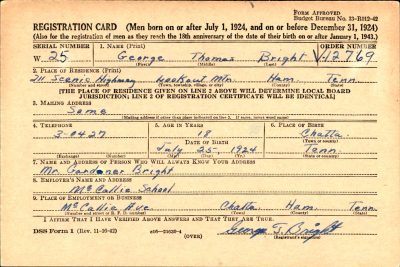 FORM APPROVED
Budget Bureau No. 33-R112-42
REGISTRATION CARD (Men born on or after July 1, 1924, and on or before December 31, 1924)
(Also for the registration of men as they reach the 18th anniversary of the date of their birth on or after January 1, 1943.)
SERIAL NUMBER 1. NAME (Print) ORDER NUMBER
W. 25 George Thomas Bright V12769
(First) (Middle) (Last)
2. PLACE OF RESIDENCE (Print)
211 Scenic Highway Lookout Mtn. Ham. Tenn.
(Number and street) (Town, township, village or city) (County) (State)
[THE PLACE OF RESIDENCE GIVEN ON LINE 2 ABOVE WILL DETERMINE LOCAL BOARD
JURISDICTION; LINE 2 OF REGISTRATION CERTIFICATE WILL BE IDENTICAL]
3. MAILING ADDRESS
Same
[Mailing address if other than place indicated on line 2. If same, insert word same]
4. TELEPHONE 5. AGE IN YEARS 6. PLACE OF BIRTH
3-0427 18 Chatta
DATE OF BIRTH (Town or county)
July 25, 1924 Tenn
(Exchange) (Number) (Mo.) (Day) (Yr.) (State or country)
7. NAME AND ADDRESS OF PERSON WHO WILL ALWAYS KNOW YOUR ADDRESS
Mr. Gardener Bright
8. EMPLOYER'S NAME AND ADDRESS
McCallie School
9. PLACE OF EMPLOYMENT OR BUSINESS
McCallie Ave Chatta Ham. Tenn.
(Number and street or R. F. D. number) (Town) (County) (State)
I AFFIRM THAT I HAVE VERIFIED ABOVE ANSWERS AND THAT THEY ARE TRUE.
DSS Form 1 (Rev. 11-16-42) (OVER) George T. Bright
(Registrant's signature)